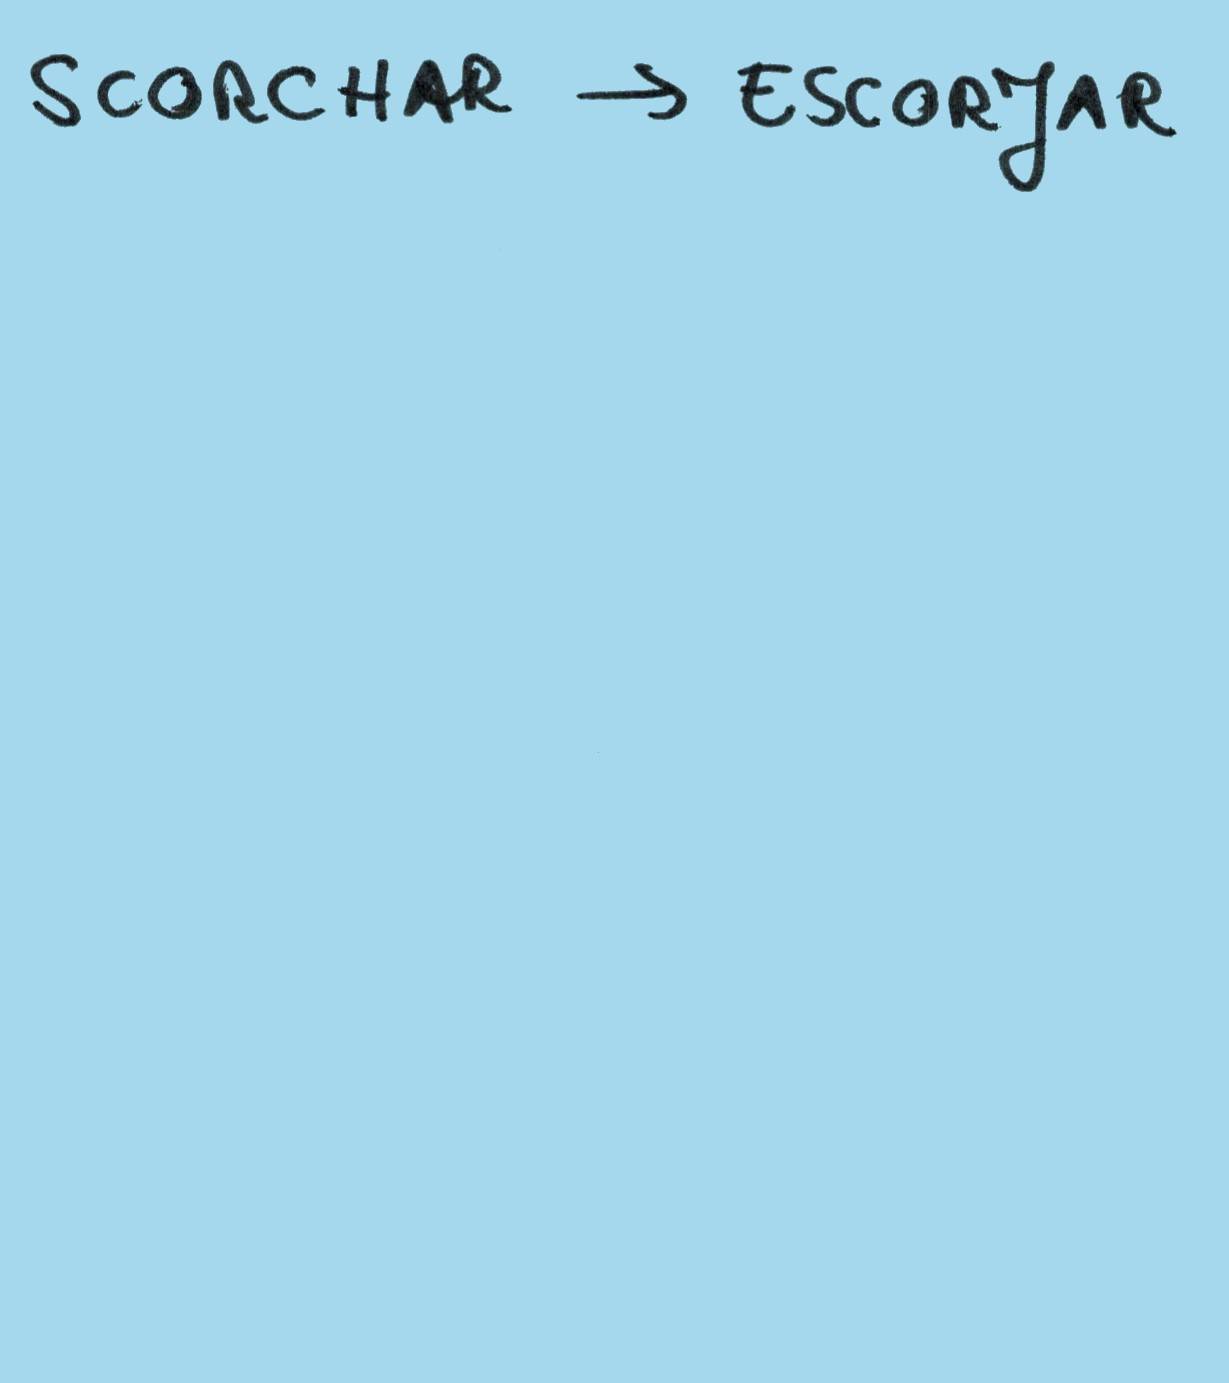 SCORCHAR → ESCORJAR